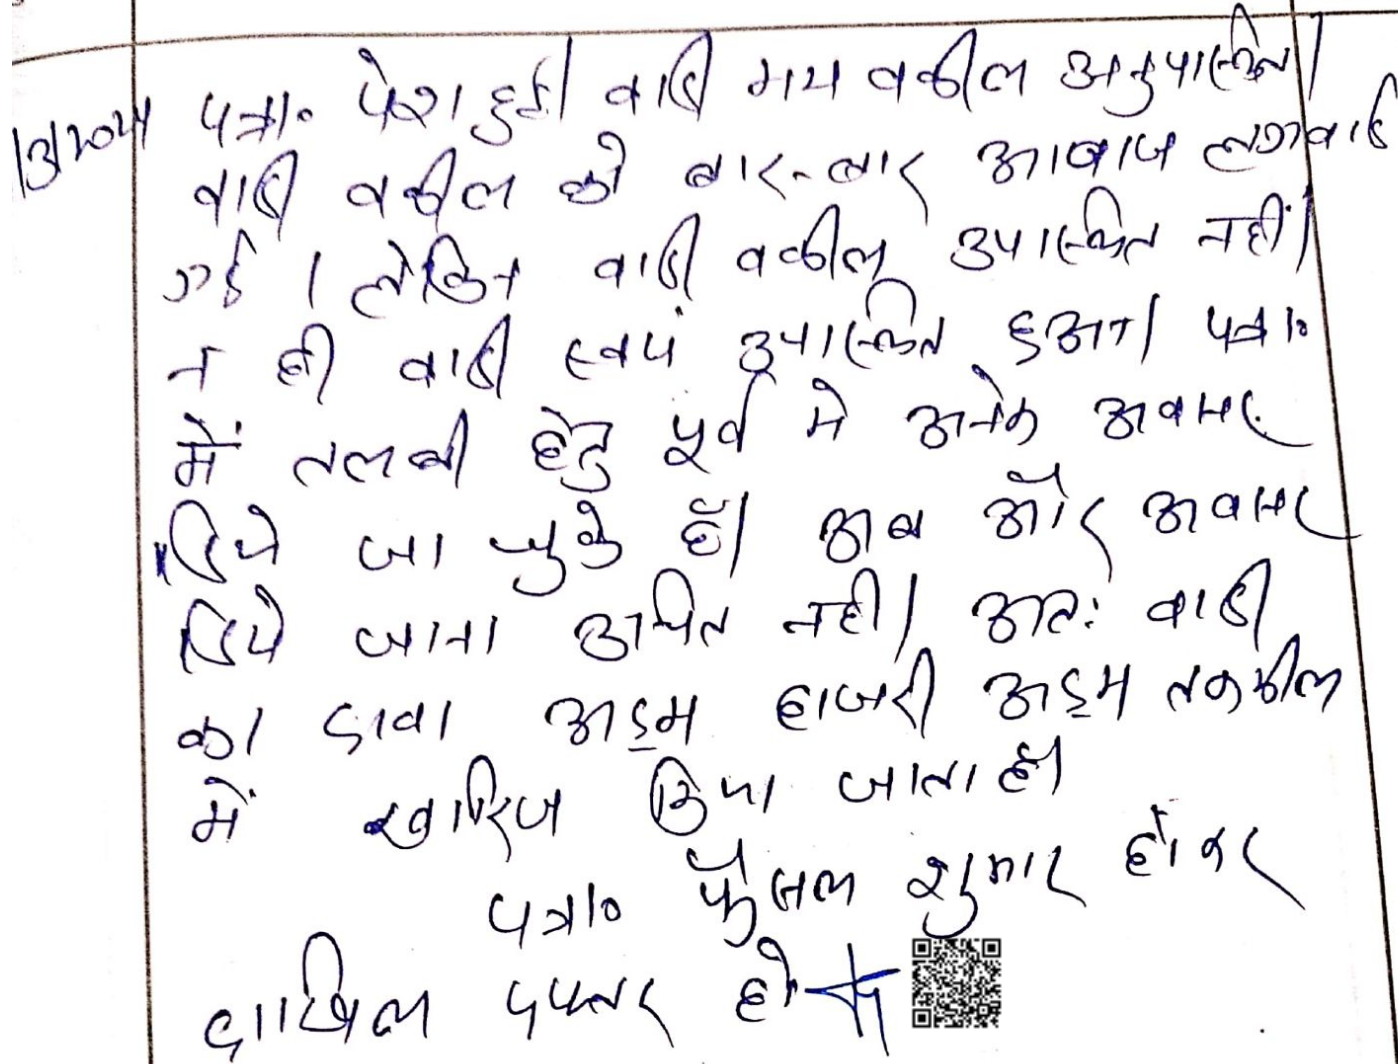 13/2024 पत्रा० पेश हुई। वादी मय वकील अनुपस्थित।
वादी वकील को बार-बार आवाज लगवाई
गई । लेकिन वादी वकील उपस्थित नहीं।
न ही वादी स्वयं उपस्थित हुआ। पत्रा०
में तलबी हेतु पूर्व मे अनेक अवसर
दिये जा चुके हैं। अब और अवसर
दिये जाना उचित नही। अतः वादी
का दावा अदम हाजरी अदम तकमील
में खारिज किया जाता है।
पत्रा० फैसल शुमार होकर
दाखिल दफ्तर हो